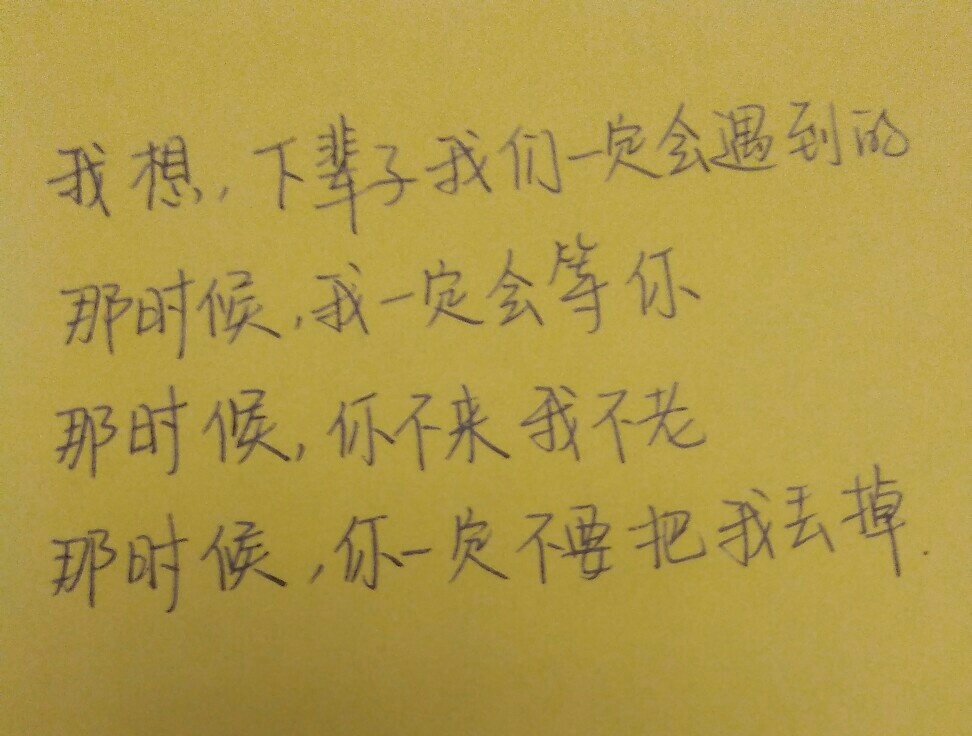 我想，下辈子我们一定会遇到的
那时候，我一定会等你
那时候，你不来我不老
那时候，你一定不要把我丢掉.